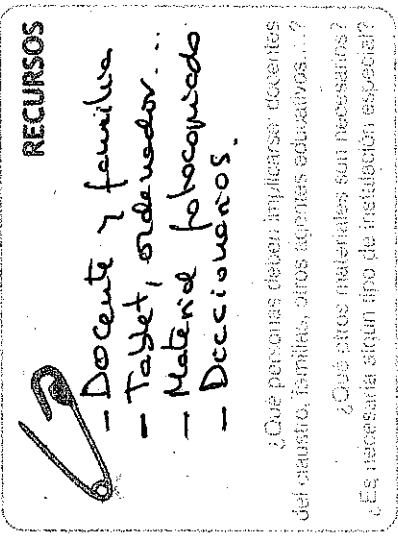 RECURSOS
- Docente y familia
- Tablet, ordenador...
- Material fotocopiado
- Diccionarios.
¿Qué personas deben implicarse: docentes
del claustro, familias, otros agentes educativos...?
¿Qué otros materiales son necesarios?
¿Es necesaria algún tipo de instalación especial?